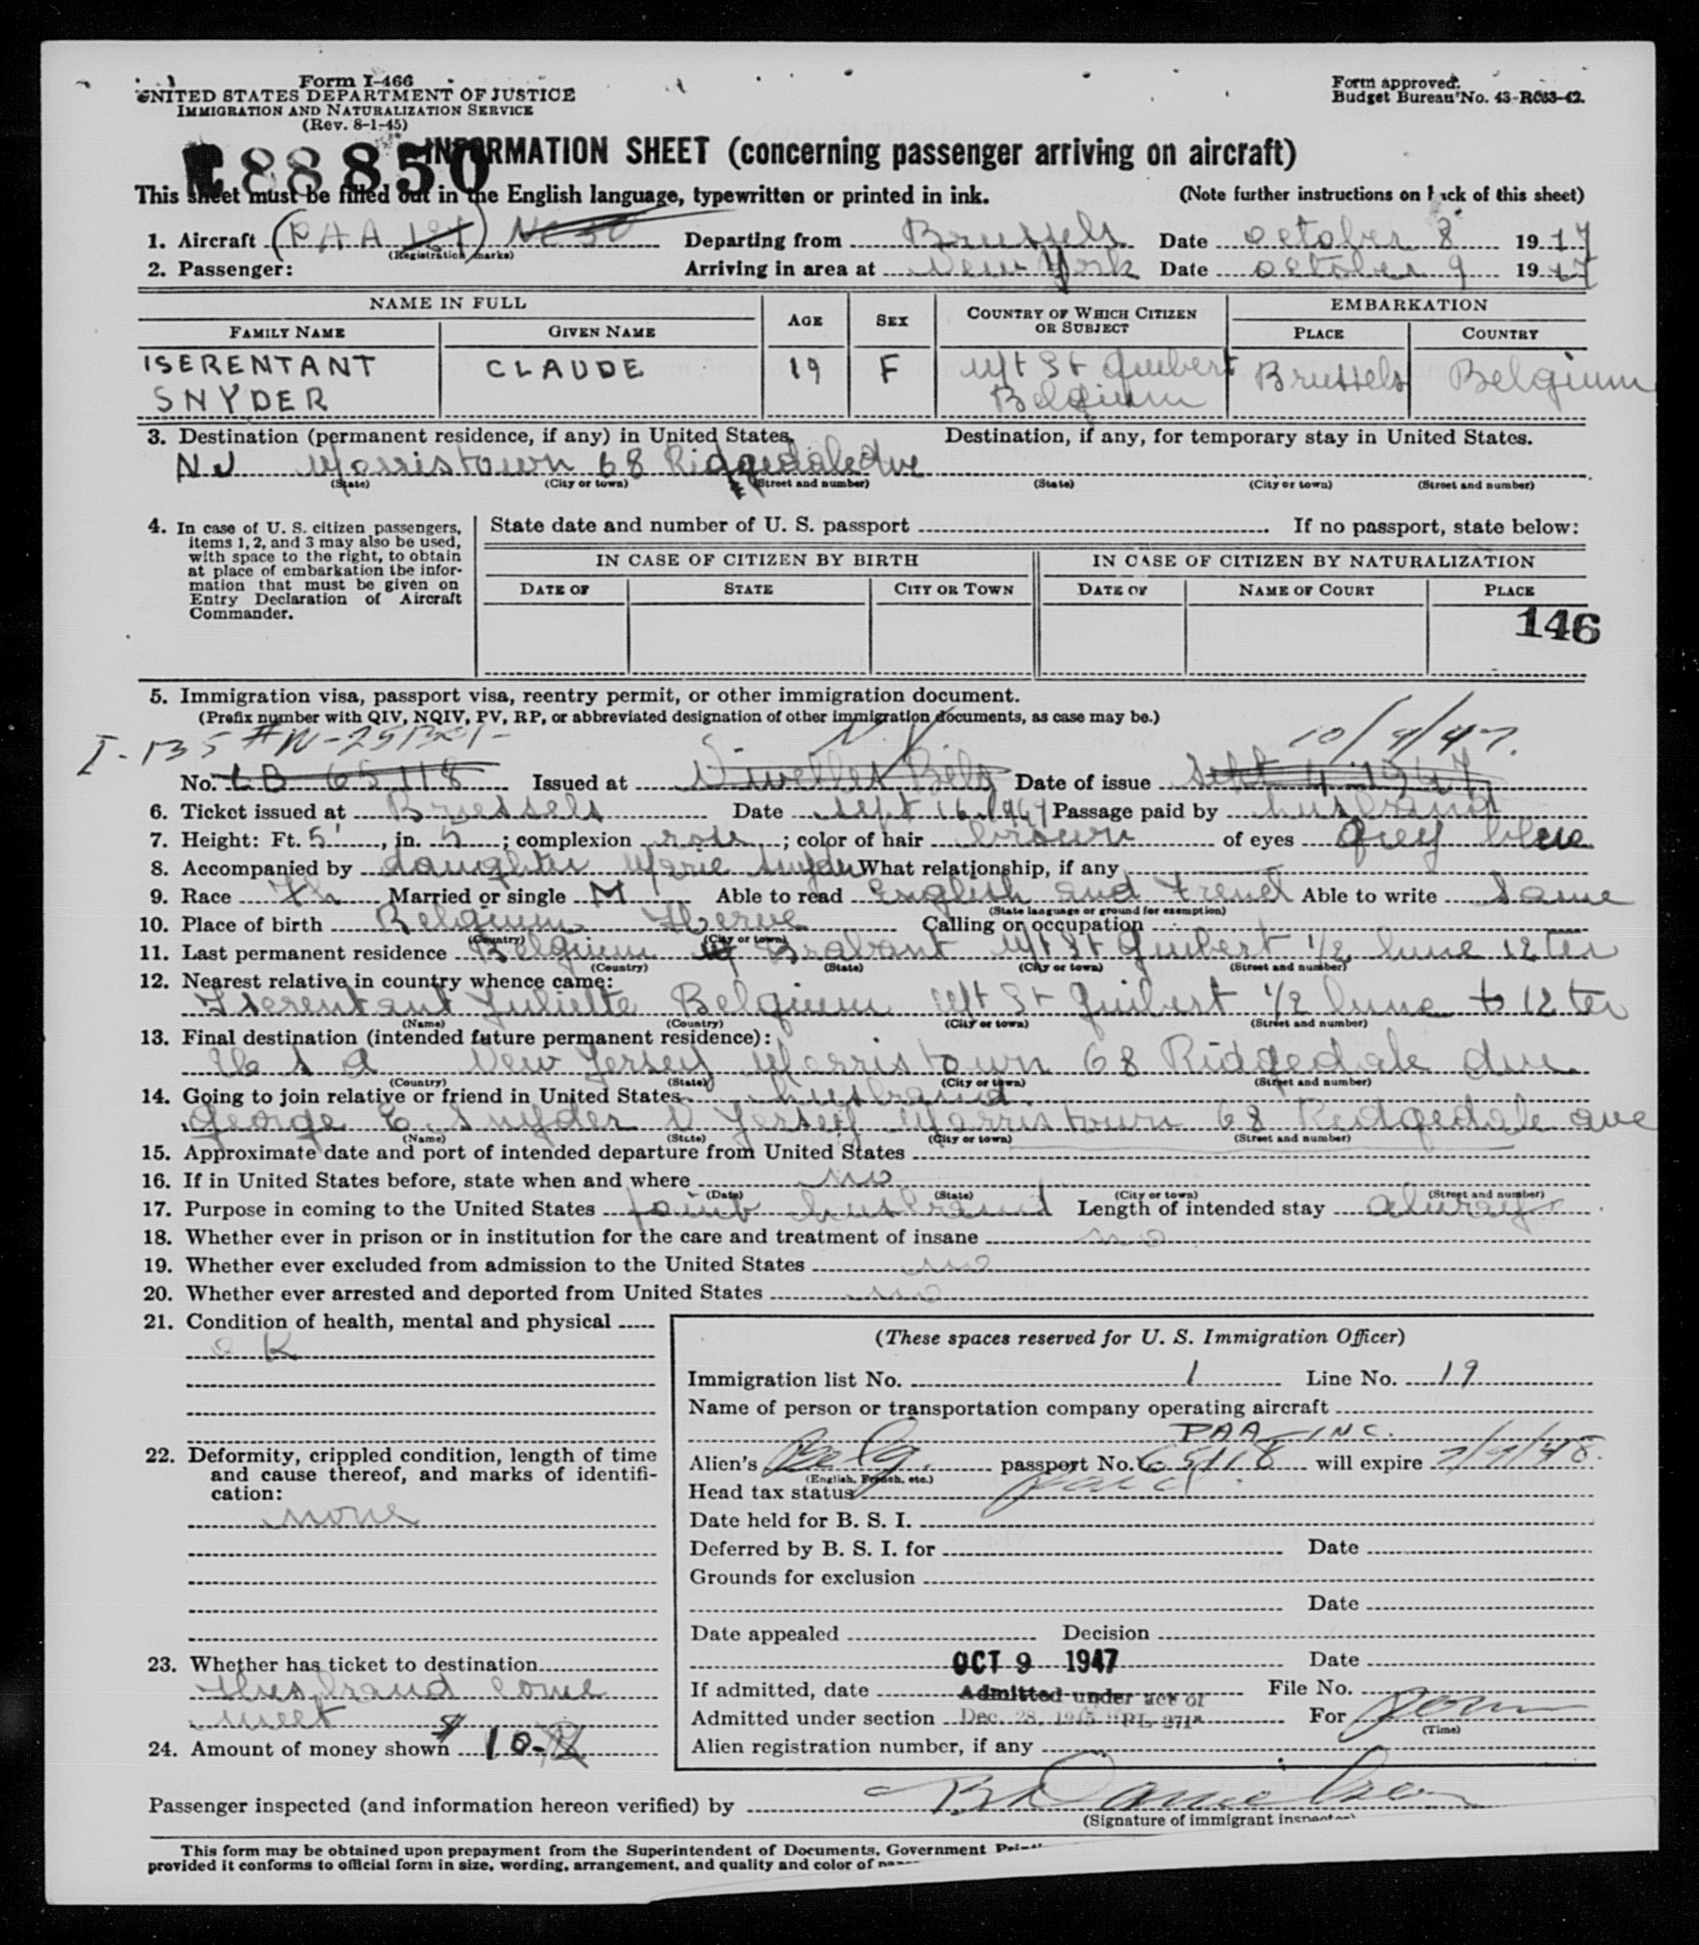 Form I-466
UNITED STATES DEPARTMENT OF JUSTICE
IMMIGRATION AND NATURALIZATION SERVICE
(Rev. 8-1-45)
Form approved.
Budget Bureau No. 43-R083-42.
88850
INFORMATION SHEET (concerning passenger arriving on aircraft)
This sheet must be filled out in the English language, typewritten or printed in ink. (Note further instructions on back of this sheet)
1. Aircraft (PAA 121) NC 50 Departing from Brussels Date october 8 1947
(Registration marks)
2. Passenger: Arriving in area at New York Date october 9 1947
NAME IN FULL AGE SEX COUNTRY OF WHICH CITIZEN OR SUBJECT EMBARKATION
FAMILY NAME GIVEN NAME PLACE COUNTRY
ISERENTANT CLAUDE 19 F Mt St Guibert Brussels Belgium
SNYDER Belgium
3. Destination (permanent residence, if any) in United States. Destination, if any, for temporary stay in United States.
NJ Morristown 68 Ridgedale Ave
(State) (City or town) (Street and number) (State) (City or town) (Street and number)
4. In case of U. S. citizen passengers, items 1, 2, and 3 may also be used, with space to the right, to obtain at place of embarkation the information that must be given on Entry Declaration of Aircraft Commander.
State date and number of U. S. passport If no passport, state below:
IN CASE OF CITIZEN BY BIRTH IN CASE OF CITIZEN BY NATURALIZATION
DATE OF STATE CITY OR TOWN DATE OF NAME OF COURT PLACE
146
5. Immigration visa, passport visa, reentry permit, or other immigration document.
(Prefix number with QIV, NQIV, PV, RP, or abbreviated designation of other immigration documents, as case may be.)
I-135 N.Y. 10/9/47.
No. LB 65118 Issued at Nivelles Belg Date of issue Sept 4 1947
6. Ticket issued at Brussels Date sept 16 1947 Passage paid by husband
7. Height: Ft. 5', in. 5; complexion rose; color of hair brown of eyes grey blue
8. Accompanied by daughter Marie Snyder What relationship, if any
9. Race Married or single M Able to read English and French Able to write same
(State language or ground for exemption)
10. Place of birth Belgium Herve Calling or occupation
(Country) (City or town)
11. Last permanent residence Belgium Brabant Mt St Guibert 1/2 lune 12 ter
(Country) (State) (City or town) (Street and number)
12. Nearest relative in country whence came:
Iserentant Juliette Belgium Mt St Guibert 1/2 lune 12 ter
(Name) (Country) (City or town) (Street and number)
13. Final destination (intended future permanent residence):
U S A New Jersey Morristown 68 Ridgedale Ave
(Country) (State) (City or town) (Street and number)
14. Going to join relative or friend in United States husband
George E. Snyder N Jersey Morristown 68 Ridgedale ave
(Name) (State) (City or town) (Street and number)
15. Approximate date and port of intended departure from United States
16. If in United States before, state when and where no
(Date) (State) (City or town) (Street and number)
17. Purpose in coming to the United States husband Length of intended stay always
18. Whether ever in prison or in institution for the care and treatment of insane no
19. Whether ever excluded from admission to the United States no
20. Whether ever arrested and deported from United States no
21. Condition of health, mental and physical
OK
22. Deformity, crippled condition, length of time and cause thereof, and marks of identification:
none
23. Whether has ticket to destination
Husband come
meet
24. Amount of money shown $ 10.
(These spaces reserved for U. S. Immigration Officer)
Immigration list No. 1 Line No. 19
Name of person or transportation company operating aircraft
PAA INC.
Alien's Belg. passport No. 65118 will expire
(English, French, etc.)
Head tax status paid
Date held for B. S. I.
Deferred by B. S. I. for Date
Grounds for exclusion
Date
Date appealed Decision
OCT 9 1947 Date
If admitted, date Admitted under act of File No.
Admitted under section Dec. 28, 1945 PL 271 For perm
(Time)
Alien registration number, if any
Passenger inspected (and information hereon verified) by
(Signature of immigrant inspector)
This form may be obtained upon prepayment from the Superintendent of Documents, Government
provided it conforms to official form in size, wording, arrangement, and quality and color of